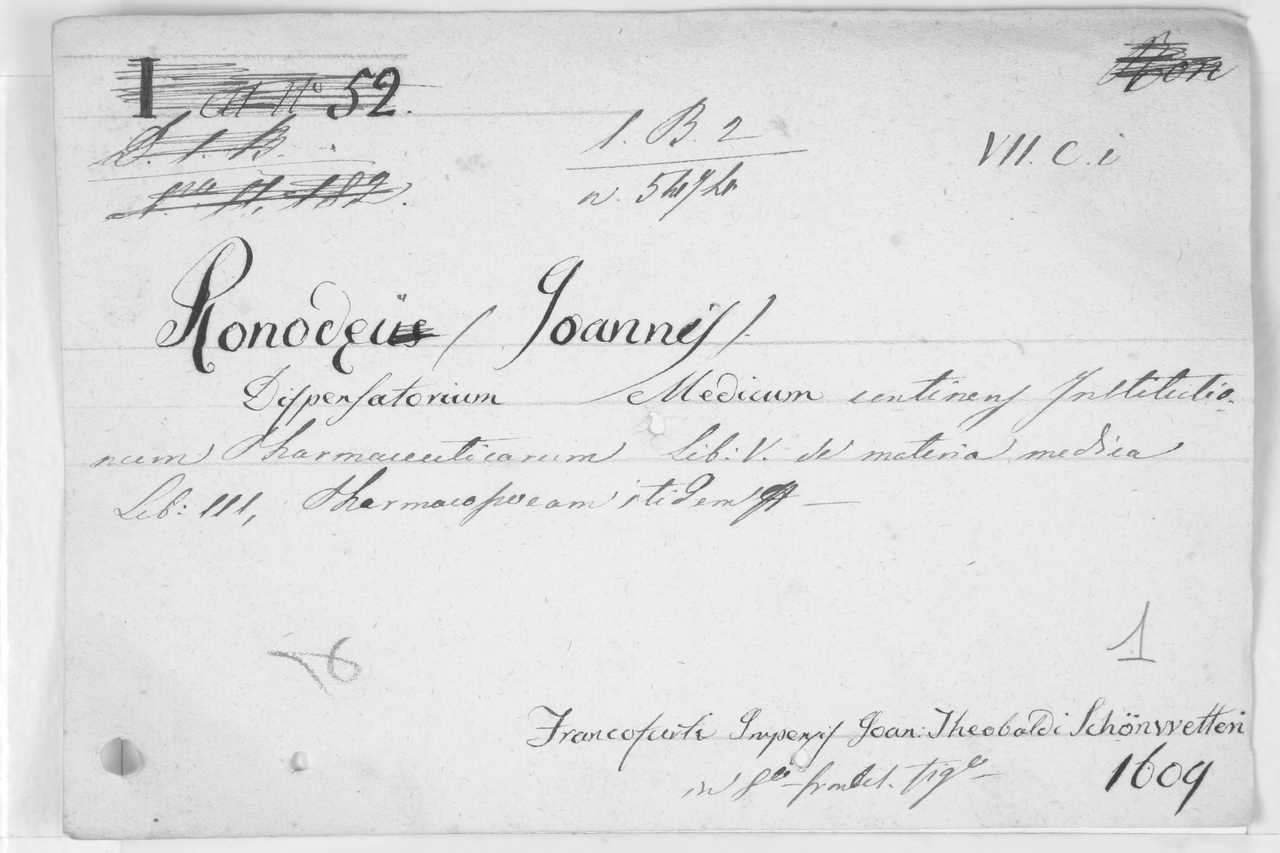 I 52.
D. 1. B.
1. B. 2
VII. C. i
n. 5474
11. 182.
Ronodęi (Joannis).
Dispensatorium Medicum continens Institutio-
num Pharmaceuticarum Lib: V. de materia medica
Lib: III, Pharmacopoeam itidem —
1
Francofurti Impensis Joan: Theobaldi Schönwetteri
in 8vo frontest. fig.
1609